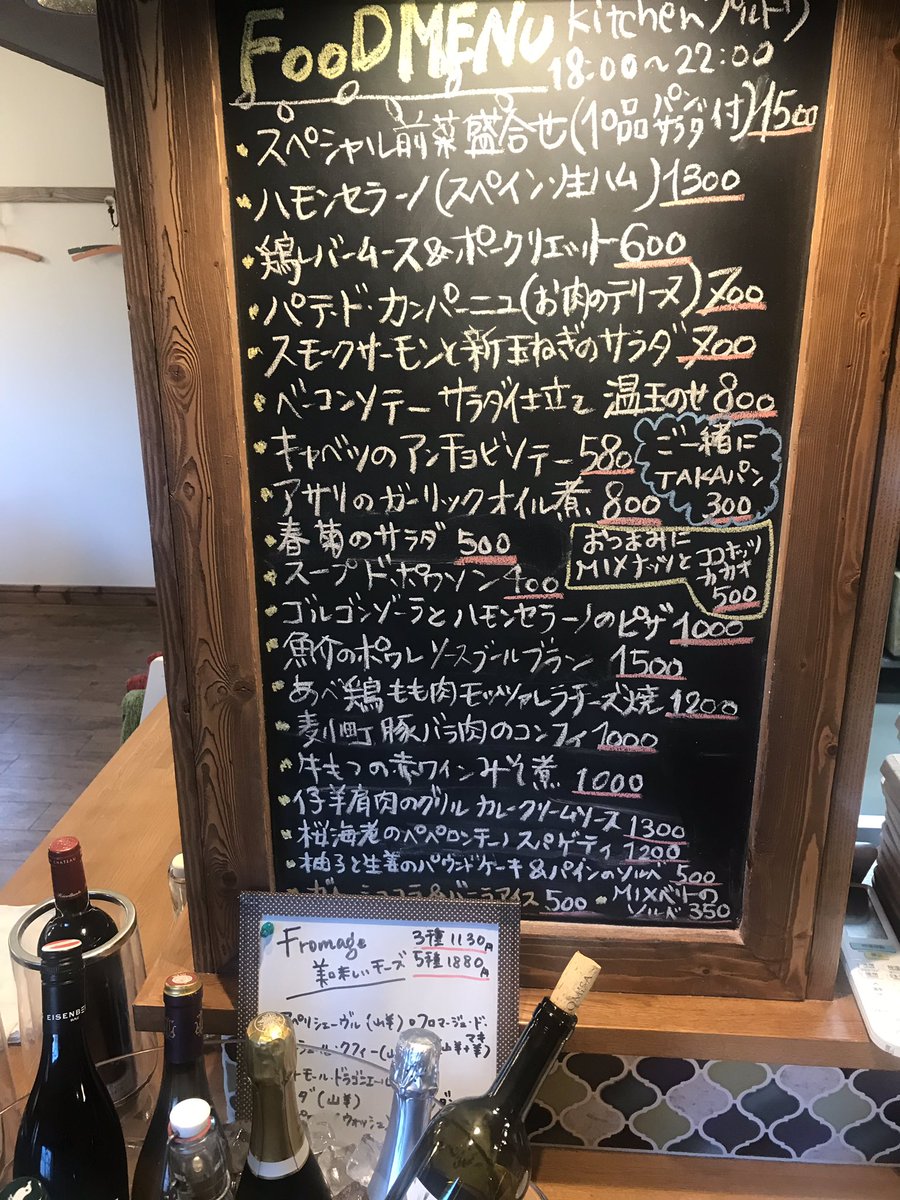 FOOD MENU Kitchen
18:00〜22:00
・スペシャル前菜盛合せ(10品パンサラダ付)1500
・ハモンセラーノ(スペイン生ハム)1300
・鶏レバームース&ポークリエット600
・パテ・ド・カンパーニュ(お肉のテリーヌ)700
・スモークサーモンと新玉ねぎのサラダ700
・ベーコンソテー サラダ仕立て 温玉のせ800
・キャベツのアンチョビソテー580
ご一緒に
TAKAパン
300
・アサリのガーリックオイル煮800
・春菊のサラダ 500
おつまみに
MIXナッツと
500
・スープ・ド・ポワソン400
・ゴルゴンゾーラとハモンセラーノのピザ1000
・魚介のポワレ ソースブールブラン 1500
・あべ鶏もも肉モッツァレラチーズ焼1200
・麦小町豚バラ肉のコンフィ1000
・牛もつの赤ワインみそ煮 1000
・仔羊肩肉のグリル カレークリームソース1300
・桜海老のペペロンチーノスパゲティ1200
・柚子と生姜のパウンドケーキ&パインのソルベ500
&バニラアイス500
・MIXベリーの
ソルベ350
Fromage
美味しいチーズ
3種1130円
5種1880円
(山羊)
(山羊)
EISENBERG